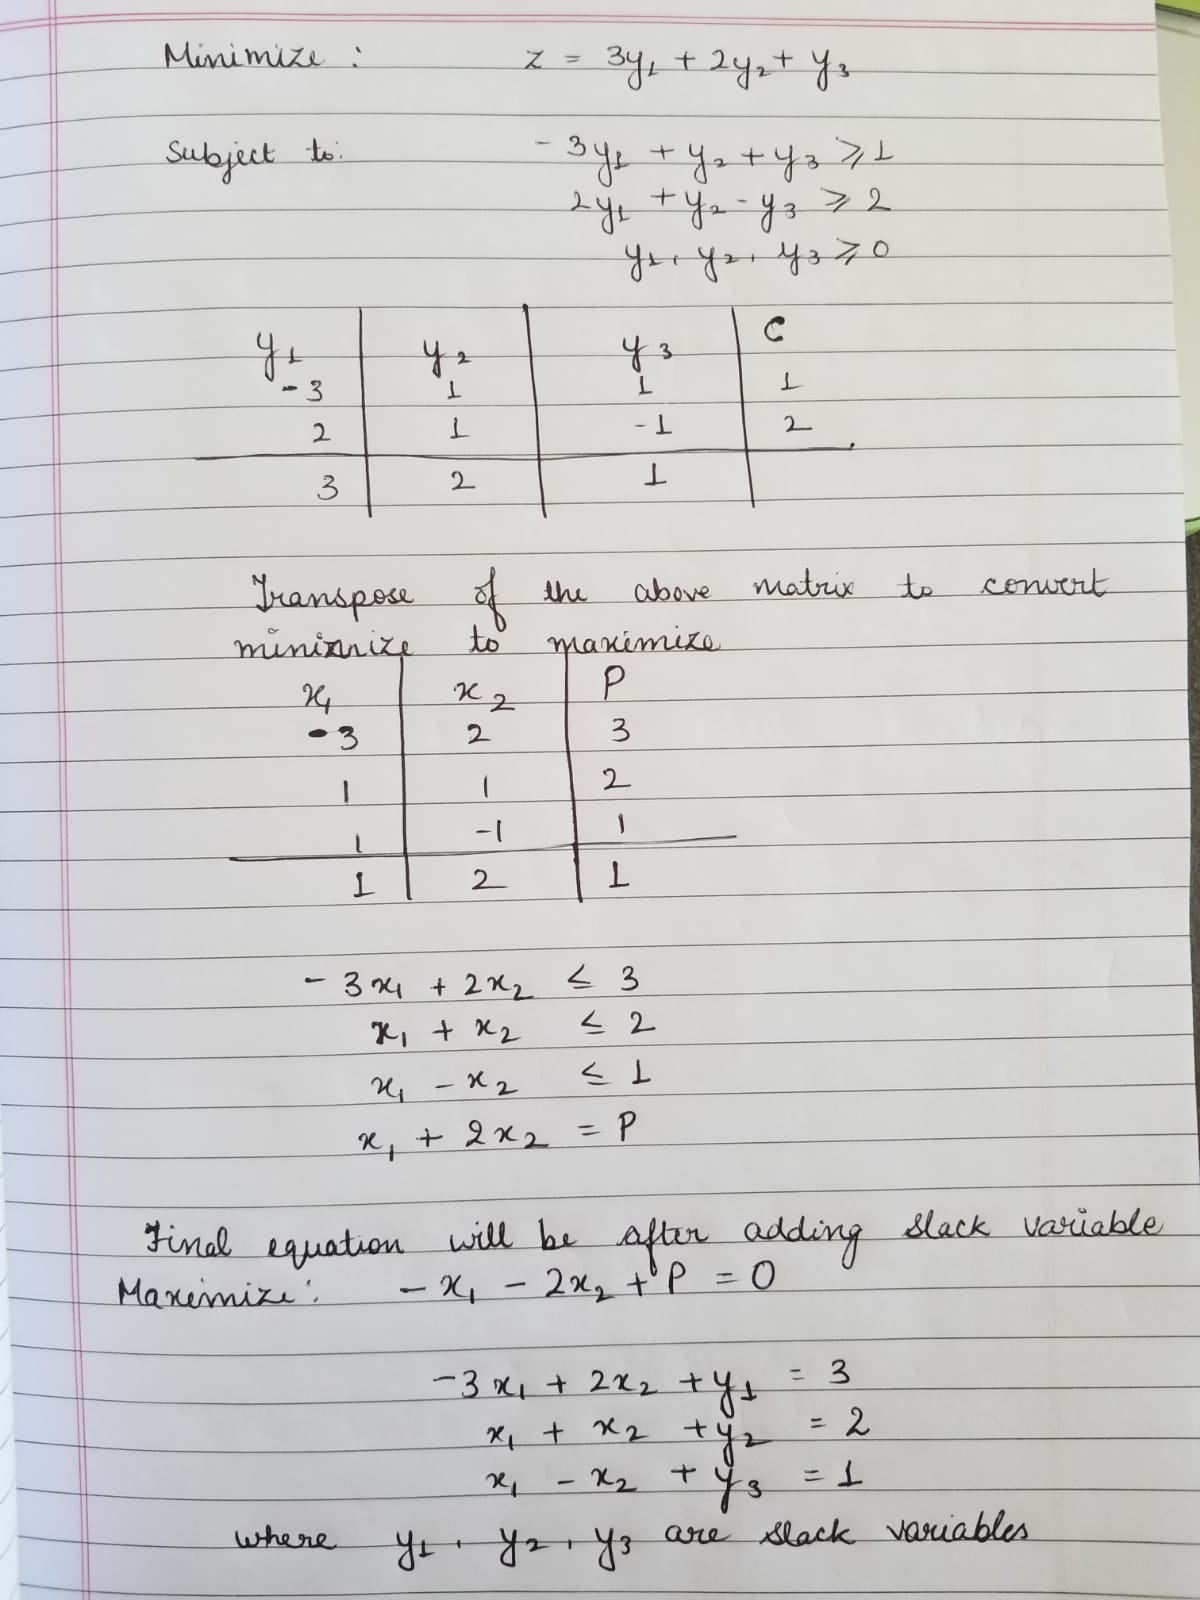 Minimize : z = 3y₁ + 2y₂ + y₃
Subject to: -3y₁ + y₂ + y₃ ⩾ 1
2y₁ + y₂ - y₃ ⩾ 2
y₁, y₂, y₃ ⩾ 0
y₁ y₂ y₃ C
-3 1 1 1
2 1 -1 2
3 2 1
Transpose of the above matrix to convert
minimize to maximize
x₁ x₂ P
-3 2 3
1 1 2
1 -1 1
1 2 1
-3x₁ + 2x₂ ≤ 3
x₁ + x₂ ≤ 2
x₁ - x₂ ≤ 1
x₁ + 2x₂ = P
Final equation will be after adding slack variable
Maximize: -x₁ - 2x₂ + P = 0
-3x₁ + 2x₂ + y₁ = 3
x₁ + x₂ + y₂ = 2
x₁ - x₂ + y₃ = 1
where y₁, y₂, y₃ are slack variables